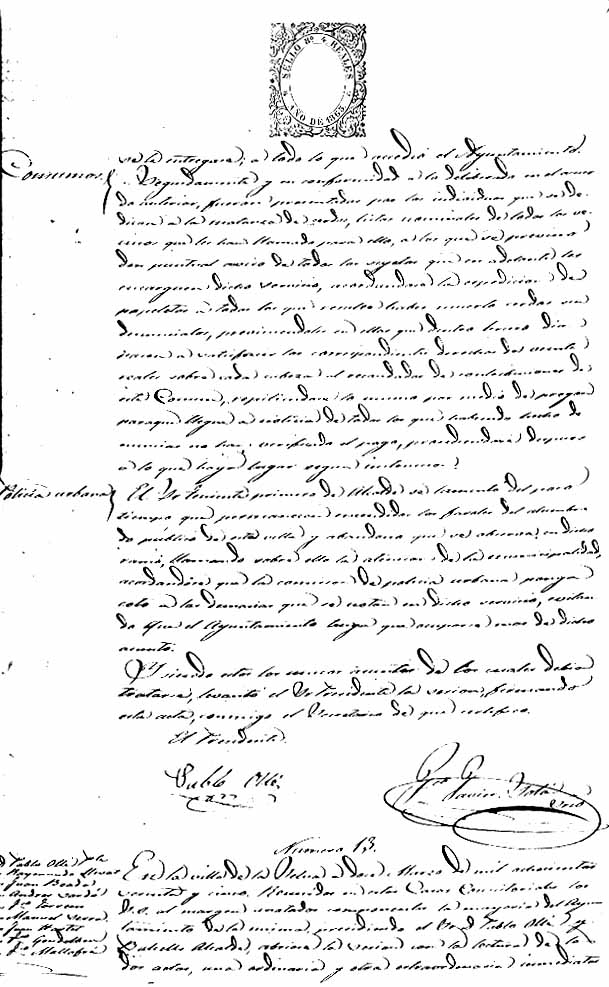 SELLO 8º 4 REALES
AÑO DE 1865
Consumos
se le entregara; a todo lo que accedió el Ayuntamiento.
Seguidamente y en conformidad a lo deliberado en el acuer
do anterior, fueron presentadas por los individuos que se de
dican a la matanza de cerdos, listas nominales de todos los ve
cinos que les han llamado para ello, a los que se previno
den puntual aviso de todos los sugetos que en adelante les
encarguen dicho servicio, acordandose la espedicion de
papeletas a todos los que resulta haber muerto cerdos sin
denunciarlos, previniendoles en ellas que dentro tercero dia
pasen a satisfacer los correspondientes derechos de veinte
reales sobre cada cabeza al recaudador de contribuciones de
este Comun, repitiendose lo mismo por medio de pregon
paraque llegue a noticia de todos los que habiendo hecho de
nuncias no han verificado el pago, procediendose despues
a lo que haya lugar segun instruccion.
Policia urbana
El Sr Teniente primero de Alcalde se lamentó del poco
tiempo que permanecen encendidos los faroles del alumbra
do público de esta villa y abandono que se observa en dicho
ramo, llamando sobre ello la atencion de la municipalidad,
acordandose que la comision de policia urbana ponga
coto a las demasias que se notan en dicho servicio, evitan
do que el Ayuntamiento tenga que ocuparse mas de dicho
asunto.
Y siendo estos los unicos asuntos de los cuales debia
tratarse, levantó el Sr Presidente la sesion, firmando
esta acta, conmigo el Secretario de que certifico.
El Presidente.
Pablo Ollé
Javier
Srio
Numero 13.
Pablo Ollé Pte
Raymundo
Juan
Andres
Manuel
Juan
En la villa de la Selva a doce Marzo de mil ochocientos
sesenta y cinco. Reunidos en estas Casas Consistoriales los
S.S. al margen anotados componentes la mayoria del Ayun
tamiento de la misma, presidiendo el Sr D. Pablo Ollé y
Alcalde, abriose la sesion con la lectura de las
dos actas, una ordinaria y otra estraordinaria inmediatas